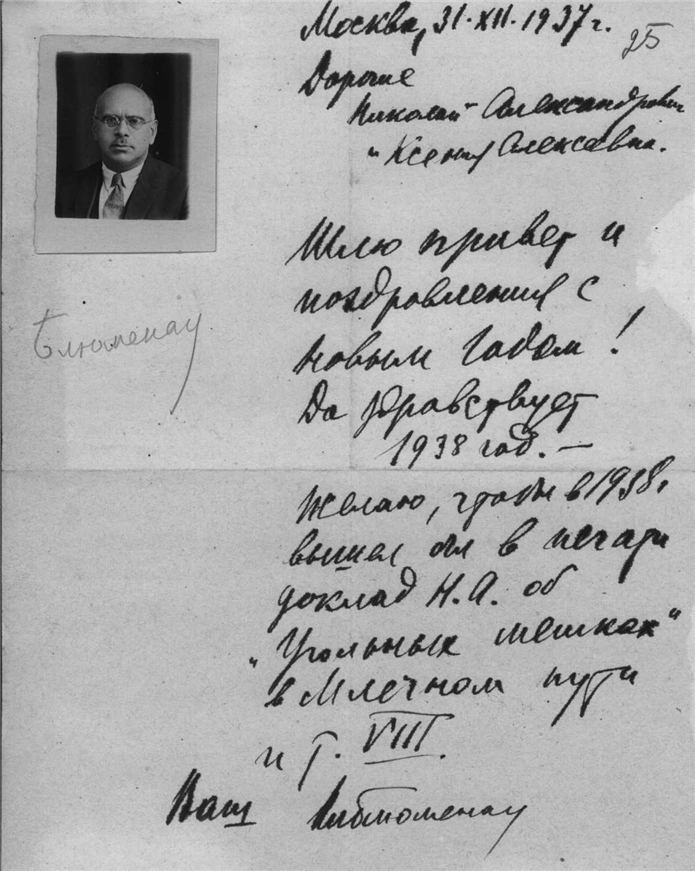 Москва, 31.XII.1937г.
25
Дорогие
Николай Александрович
и Ксения Алексевна.
Шлю привет и
поздравления с
новым годом!
Да здравствует
1938 год. —
Желаю, чтобы в 1938г.
вышел бы в печати
доклад Н.А. об
"Угольных мешках"
в Млечном пути
и т. VIII.
Ваш Блюменау
Блюменау